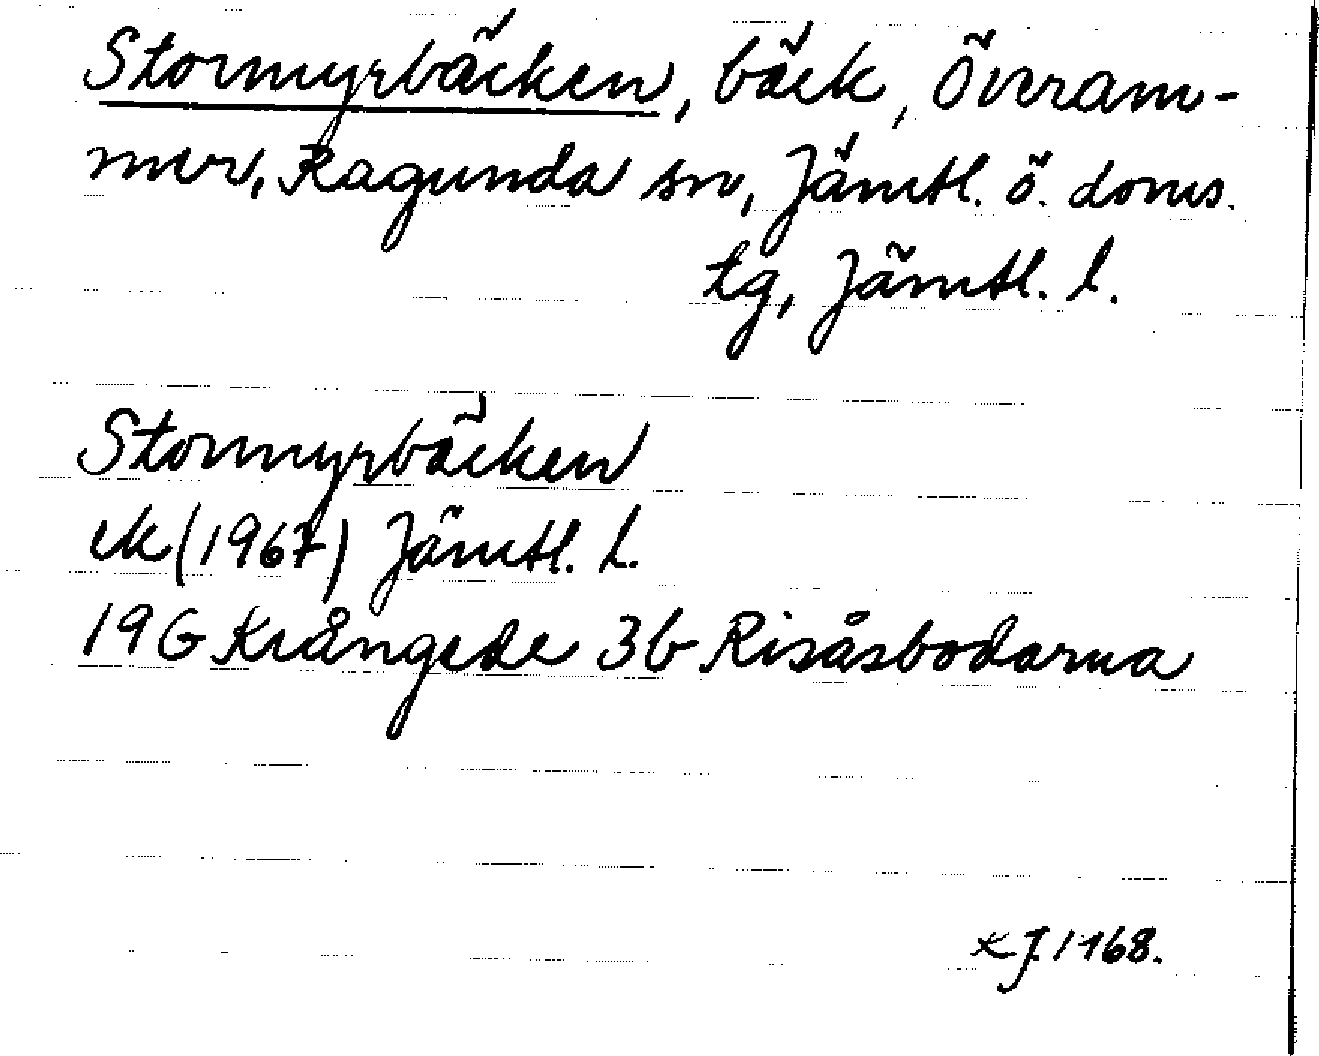 Stormyrbäcken, bäck, Överam-
mer, Ragunda sn, Jämtl. ö. doms.
tg, Jämtl. l.
Stormyrbäcken
ek (1967) Jämtl. l.
19G Krångede 3b Risåsbodarna
KJ. 1968.